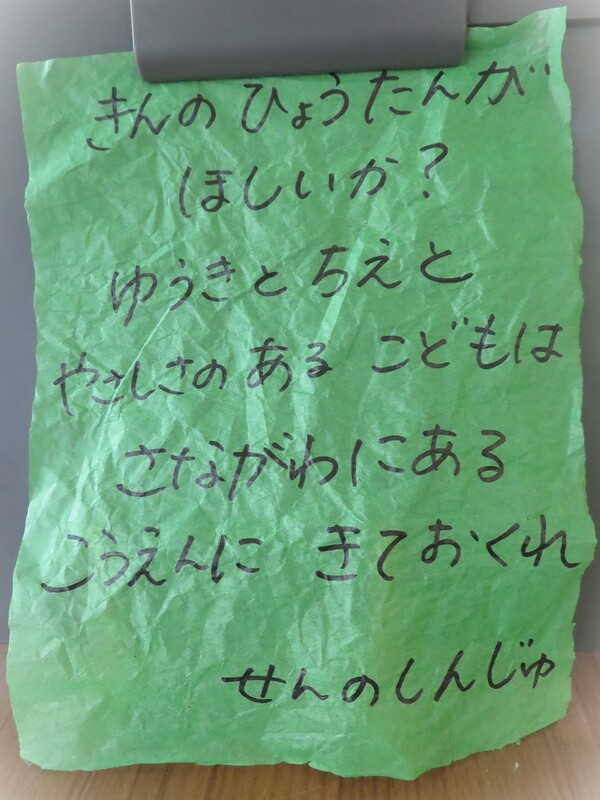 きんの ひょうたんが
ほしいか?
ゆうきと ちえと
やさしさの ある こどもは
さながわにある
こうえんに きておくれ
せんのしんじゅ